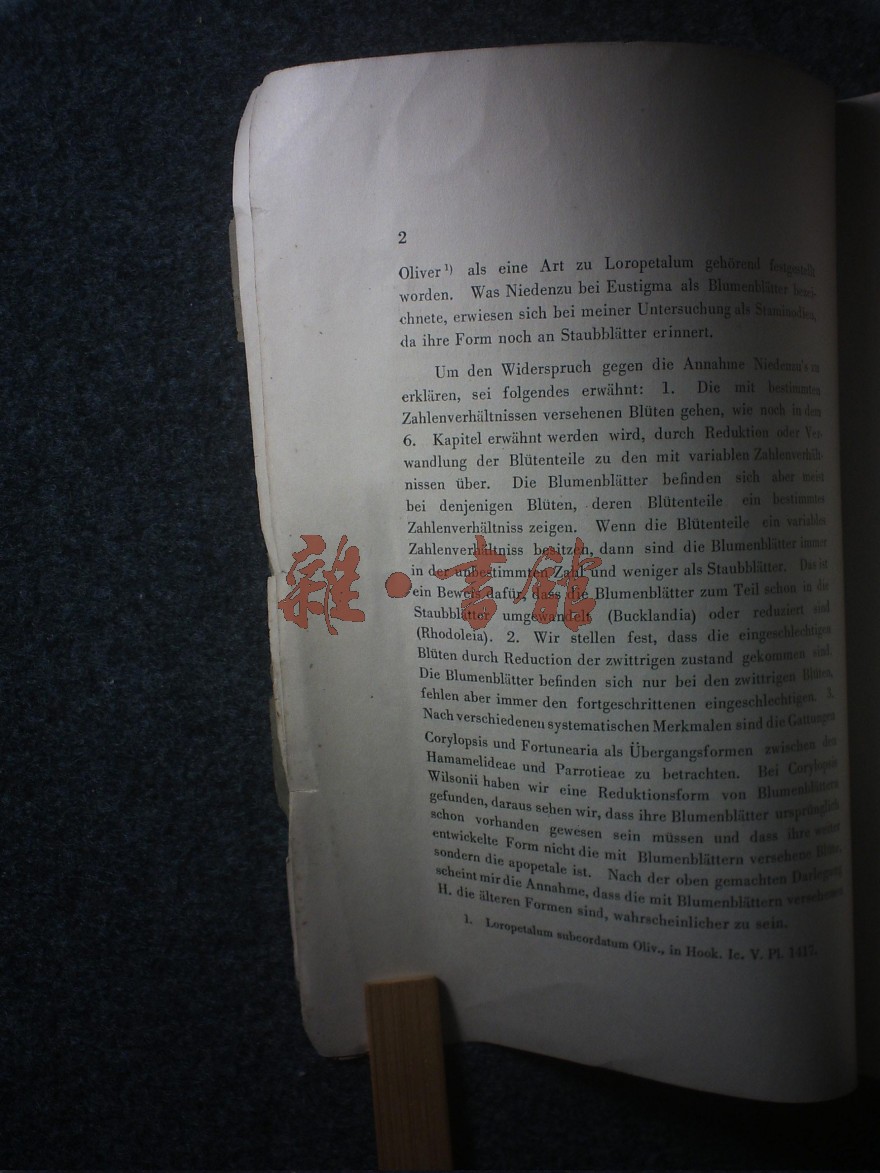 2
Oliver ¹) als eine Art zu Loropetalum gehörend festgestellt
worden. Was Niedenzu bei Eustigma als Blumenblätter bezei-
chnete, erwiesen sich bei meiner Untersuchung als Staminodien,
da ihre Form noch an Staubblätter erinnert.
Um den Widerspruch gegen die Annahme Niedenzu's zu
erklären, sei folgendes erwähnt: 1. Die mit bestimmten
Zahlenverhältnissen versehenen Blüten gehen, wie noch in dem
6. Kapitel erwähnt werden wird, durch Reduktion oder Ver-
wandlung der Blütenteile zu den mit variablen Zahlenverhält-
nissen über. Die Blumenblätter befinden sich aber meist
bei denjenigen Blüten, deren Blütenteile ein bestimmtes
Zahlenverhältniss zeigen. Wenn die Blütenteile ein variables
Zahlenverhältniss besitzen, dann sind die Blumenblätter immer
in der unbestimmten Zahl und weniger als Staubblätter. Das ist
ein Beweis dafür, dass die Blumenblätter zum Teil schon in die
Staubblätter umgewandelt (Bucklandia) oder reduziert sind
(Rhodoleia). 2. Wir stellen fest, dass die eingeschlechtigen
Blüten durch Reduction der zwittrigen zustand gekommen sind.
Die Blumenblätter befinden sich nur bei den zwittrigen Blüten,
fehlen aber immer den fortgeschrittenen eingeschlechtigen. 3.
Nach verschiedenen systematischen Merkmalen sind die Gattungen
Corylopsis und Fortunearia als Übergangsformen zwischen den
Hamamelideae und Parrotieae zu betrachten. Bei Corylopsis
Wilsonii haben wir eine Reduktionsform von Blumenblättern
gefunden, daraus sehen wir, dass ihre Blumenblätter ursprünglich
schon vorhanden gewesen sein müssen und dass ihre weiter
entwickelte Form nicht die mit Blumenblättern versehene Blüte,
sondern die apopetale ist. Nach der oben gemachten Darlegung
scheint mir die Annahme, dass die mit Blumenblättern versehenen
H. die älteren Formen sind, wahrscheinlicher zu sein.
1. Loropetalum subcordatum Oliv., in Hook. Ic. V. Pl. 1417.
雜·書館